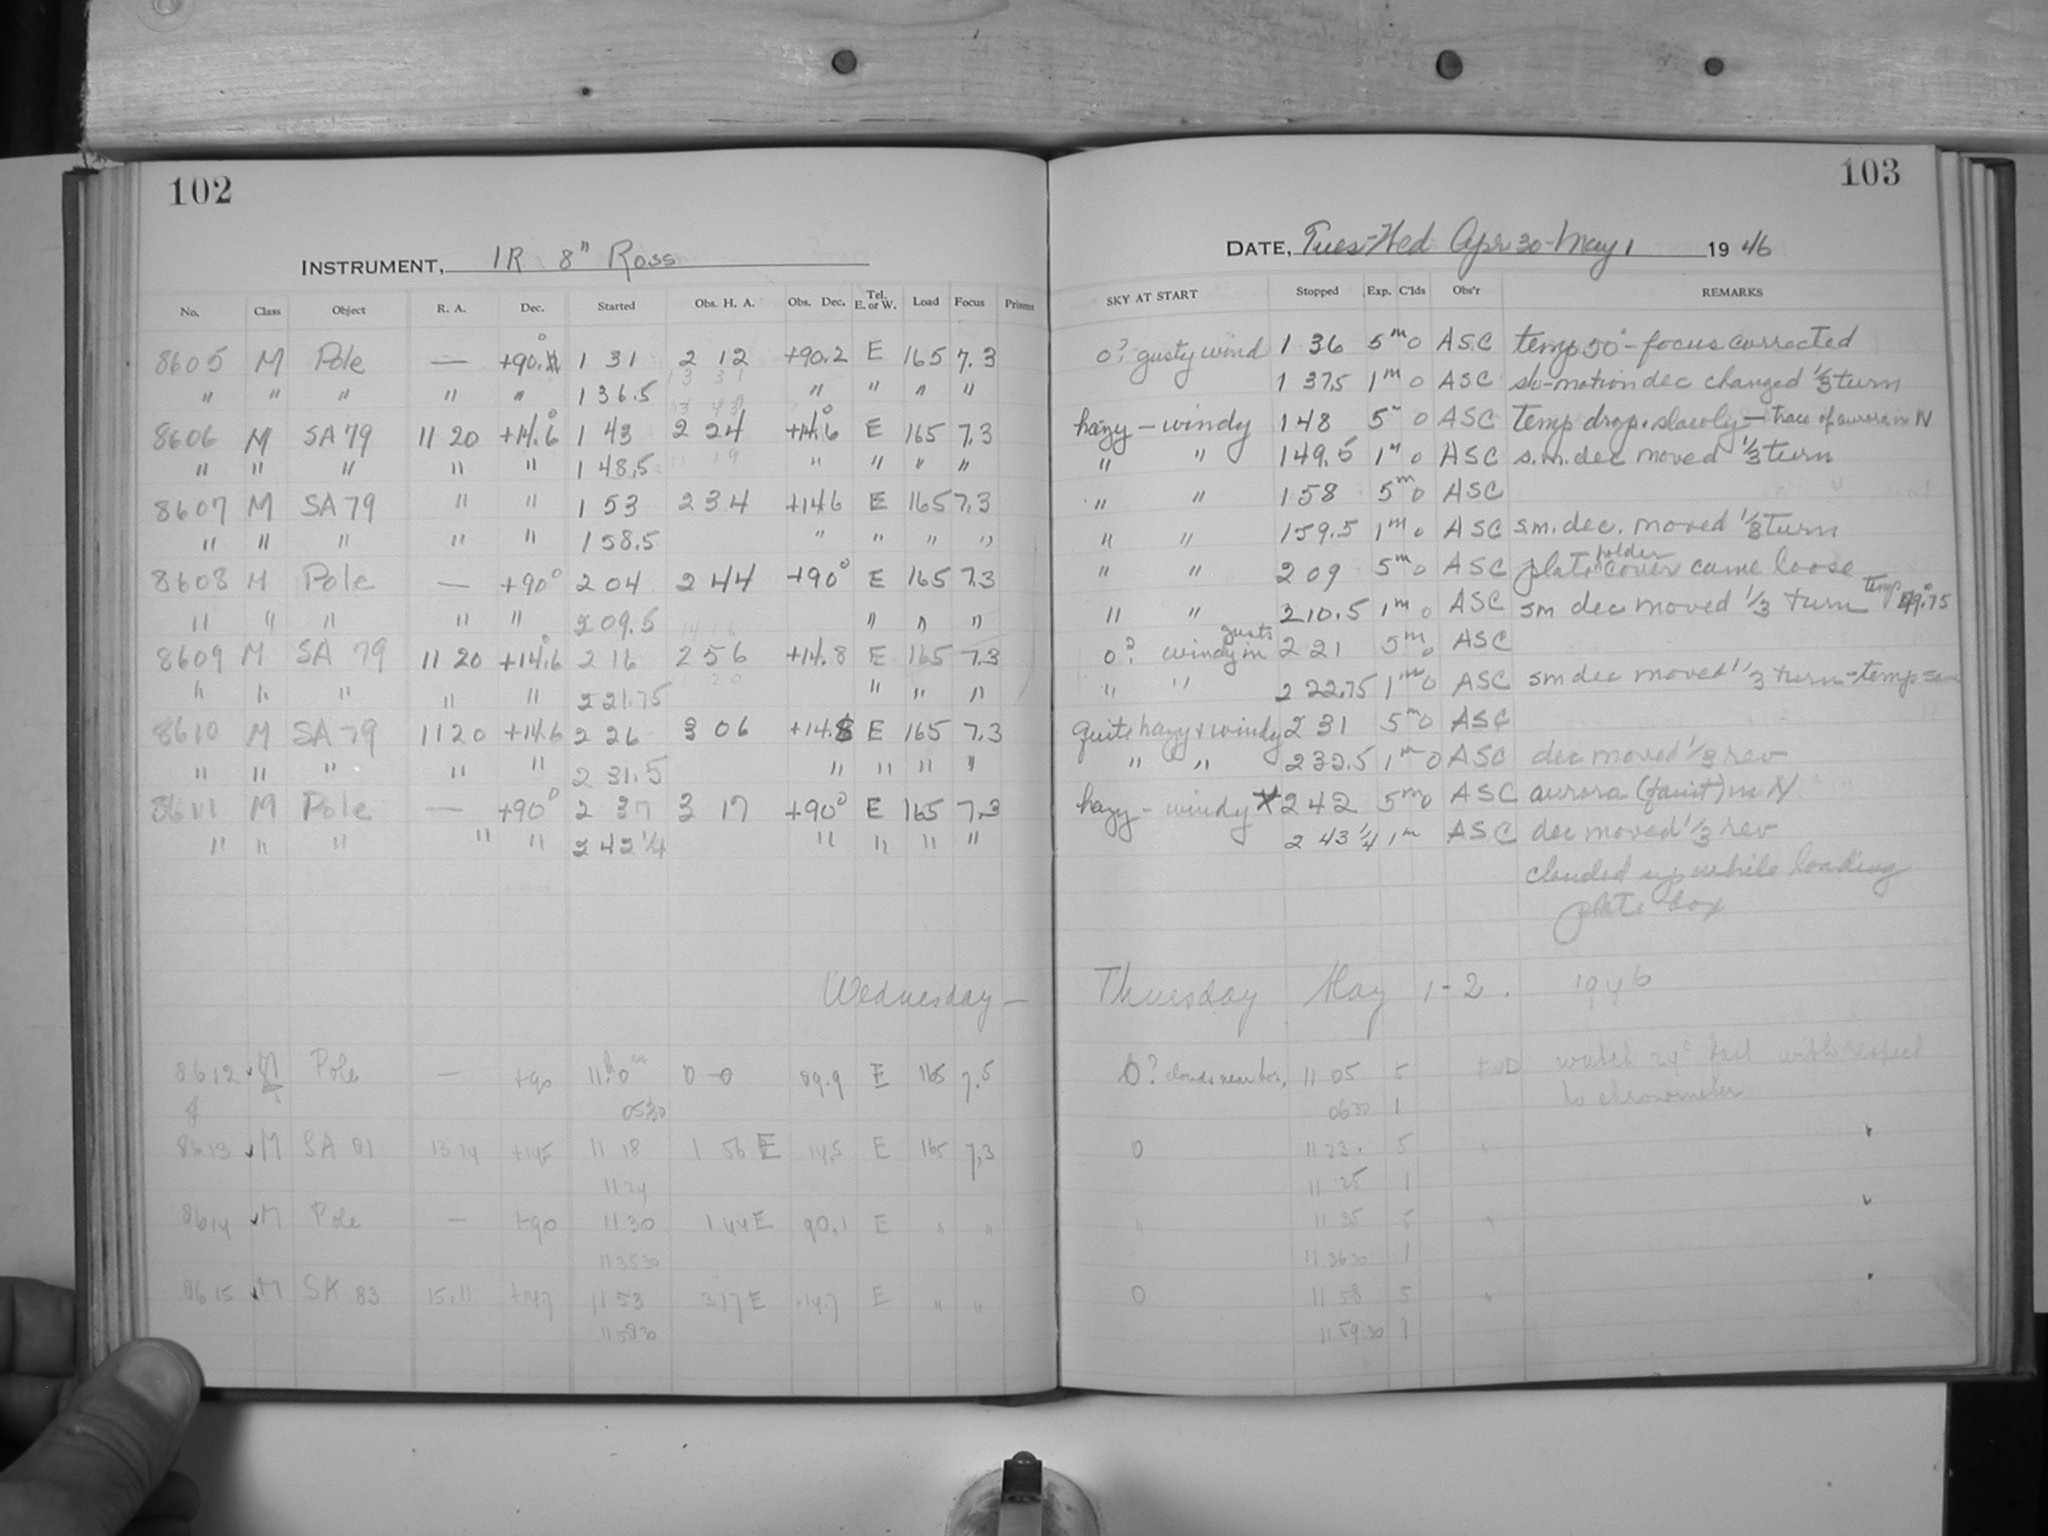 102
INSTRUMENT, IR 8" Ross
No. Class Object R. A. Dec. Started Obs. H. A. Obs. Dec. Tel. E. or W. Load Focus Prisms
8605 M Pole — +90.° 1 31 2 12 +90.2 E 165 7.3
" " " " " 1 36.5 " " " "
8606 M SA 79 11 20 +14.°6 1 43 2 24 +14.°6 E 165 7.3
" " " " " 1 48.5 " " " "
8607 M SA 79 " " 1 53 2 34 +14.6 E 165 7.3
" " " " " 1 58.5 " " " "
8608 M Pole — +90° 2 04 2 44 +90° E 165 7.3
" " " " " 2 09.5 " " "
8609 M SA 79 11 20 +14.°6 2 16 2 56 +14.8 E 165 7.3
" " " " " 2 21.75 " " "
8610 M SA 79 11 20 +14.6 2 26 3 06 +14.8 E 165 7.3
" " " " " 2 31.5 " " " "
8611 M Pole — +90° 2 37 3 17 +90° E 165 7.3
" " " " " 2 42 1/4 " " " "
Wednesday —
8612 M Pole — +90 11h 0m 0 0 89.9 E 165 7.5
05 30
8613 M SA 81 13 14 +14.5 11 18 1 56 E 14.5 E 165 7.3
11 24
8614 M Pole — +90 11 30 1 44 E 90.1 E " "
11 35 30
8615 M SA 83 15.11 +14.7 11 53 3 17 E +14.7 E " "
11 58 30
103
DATE, Tues-Wed Apr 30-May 1 1946
SKY AT START Stopped Exp. C'lds Obs'r REMARKS
0? gusty wind 1 36 5m 0 ASC temp 50° - focus corrected
1 37.5 1m 0 ASC slo-motion dec changed 1/3 turn
hazy - windy 1 48 5m 0 ASC temp drop. slowly — trace of aurora in N
" " 1 49.5 1m 0 ASC s.m. dec moved 1/3 turn
" " 1 58 5m 0 ASC
" " 1 59.5 1m 0 ASC s.m. dec. moved 1/3 turn
" " 2 09 5m 0 ASC plate holder cover came loose
" " 2 10.5 1m 0 ASC sm dec moved 1/3 turn temp 49.°75
0? windy in gusts 2 21 5m 0 ASC
" " 2 22.75 1m 0 ASC sm dec moved 1/3 turn - temp same
quite hazy & windy 2 31 5m 0 ASC
" " 2 32.5 1m 0 ASC dec moved 1/3 rev
hazy - windy 2 42 5m 0 ASC aurora (faint) in N
2 43 1/4 1m ASC dec moved 1/3 rev
clouded up while loading
plate box
Thursday May 1-2. 1946
0? clouds near hor. 11 05 5 watch 24s fast with respect
06 30 1 to chronometer
0 11 23. 5 "
11 25 1
" 11 35 5 "
11 36 30 1
0 11 58 5 "
11 59 30 1